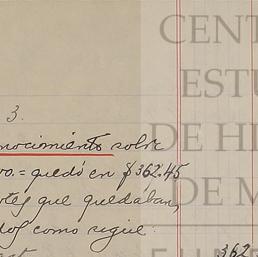 3.
nocimiento sobre
vo. = quedó en $362.45
otes que quedaban,
dos como sigue:
362
CENT
ESTU
DE HI
DE M